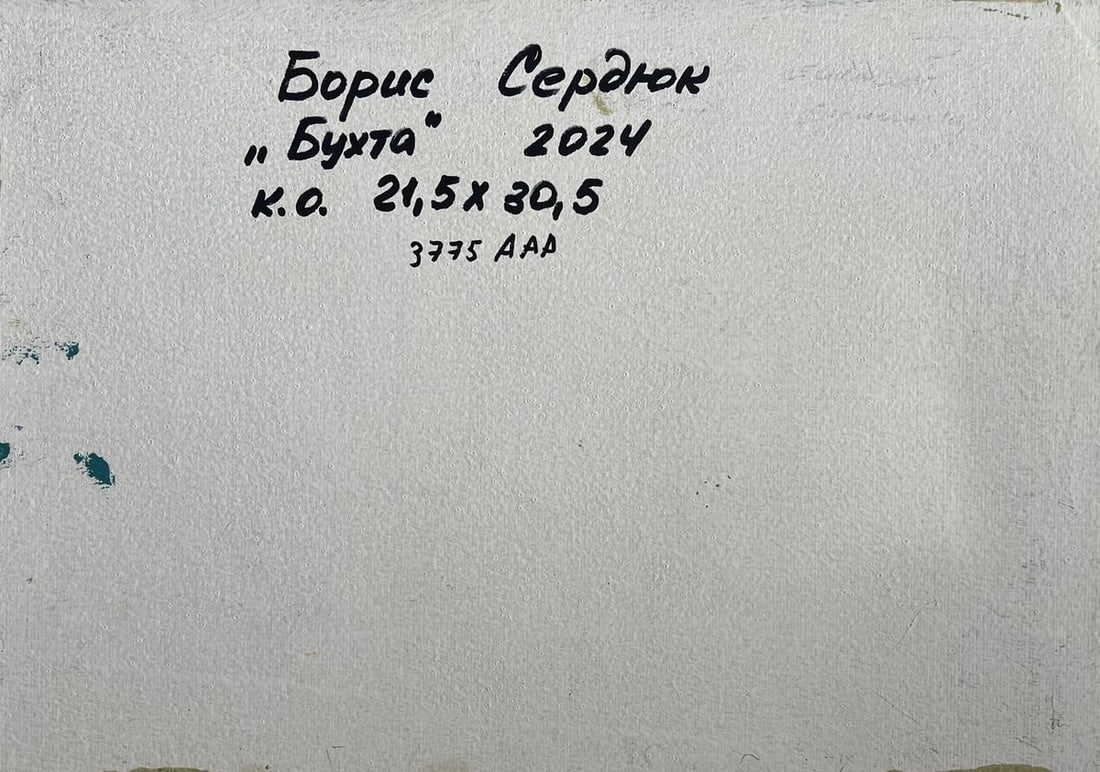 Борис Сердюк
„Бухта" 2024
к.о. 21,5 х 30,5
3775 ААА